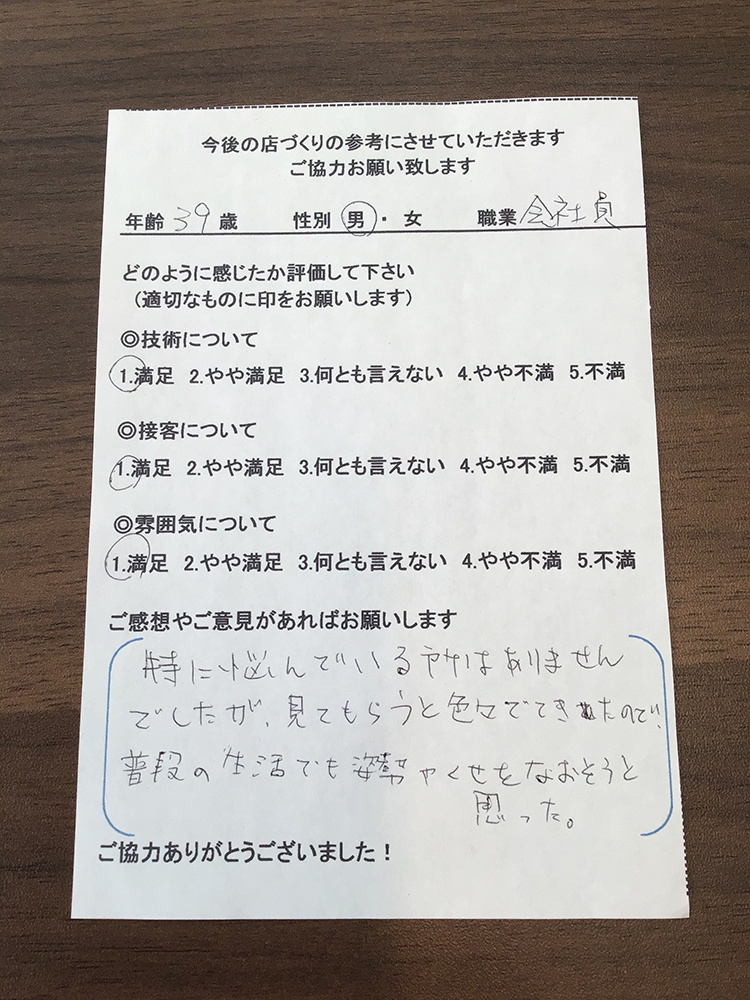 今後の店づくりの参考にさせていただきます
ご協力お願い致します
年齢 39 歳 性別 男・女 職業 会社員
どのように感じたか評価して下さい
(適切なものに印をお願いします)
◎技術について
1.満足 2.やや満足 3.何とも言えない 4.やや不満 5.不満
◎接客について
1.満足 2.やや満足 3.何とも言えない 4.やや不満 5.不満
◎雰囲気について
1.満足 2.やや満足 3.何とも言えない 4.やや不満 5.不満
ご感想やご意見があればお願いします
特に悩んでいる所はありません
でしたが、見てもらうと色々でてきたので、
普段の生活でも姿勢やくせをなおそうと
思った。
ご協力ありがとうございました！